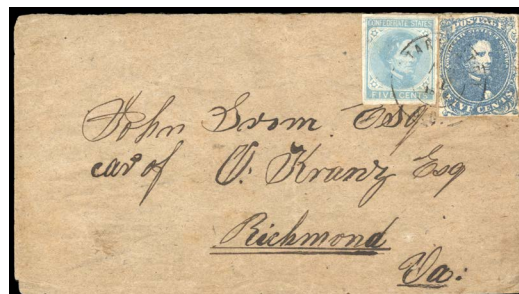 CONFEDERATE STATES
FIVE CENTS
POSTAGE
FIVE CENTS
John Esq.
car of O. Kranz Esq
Richmond
Va: